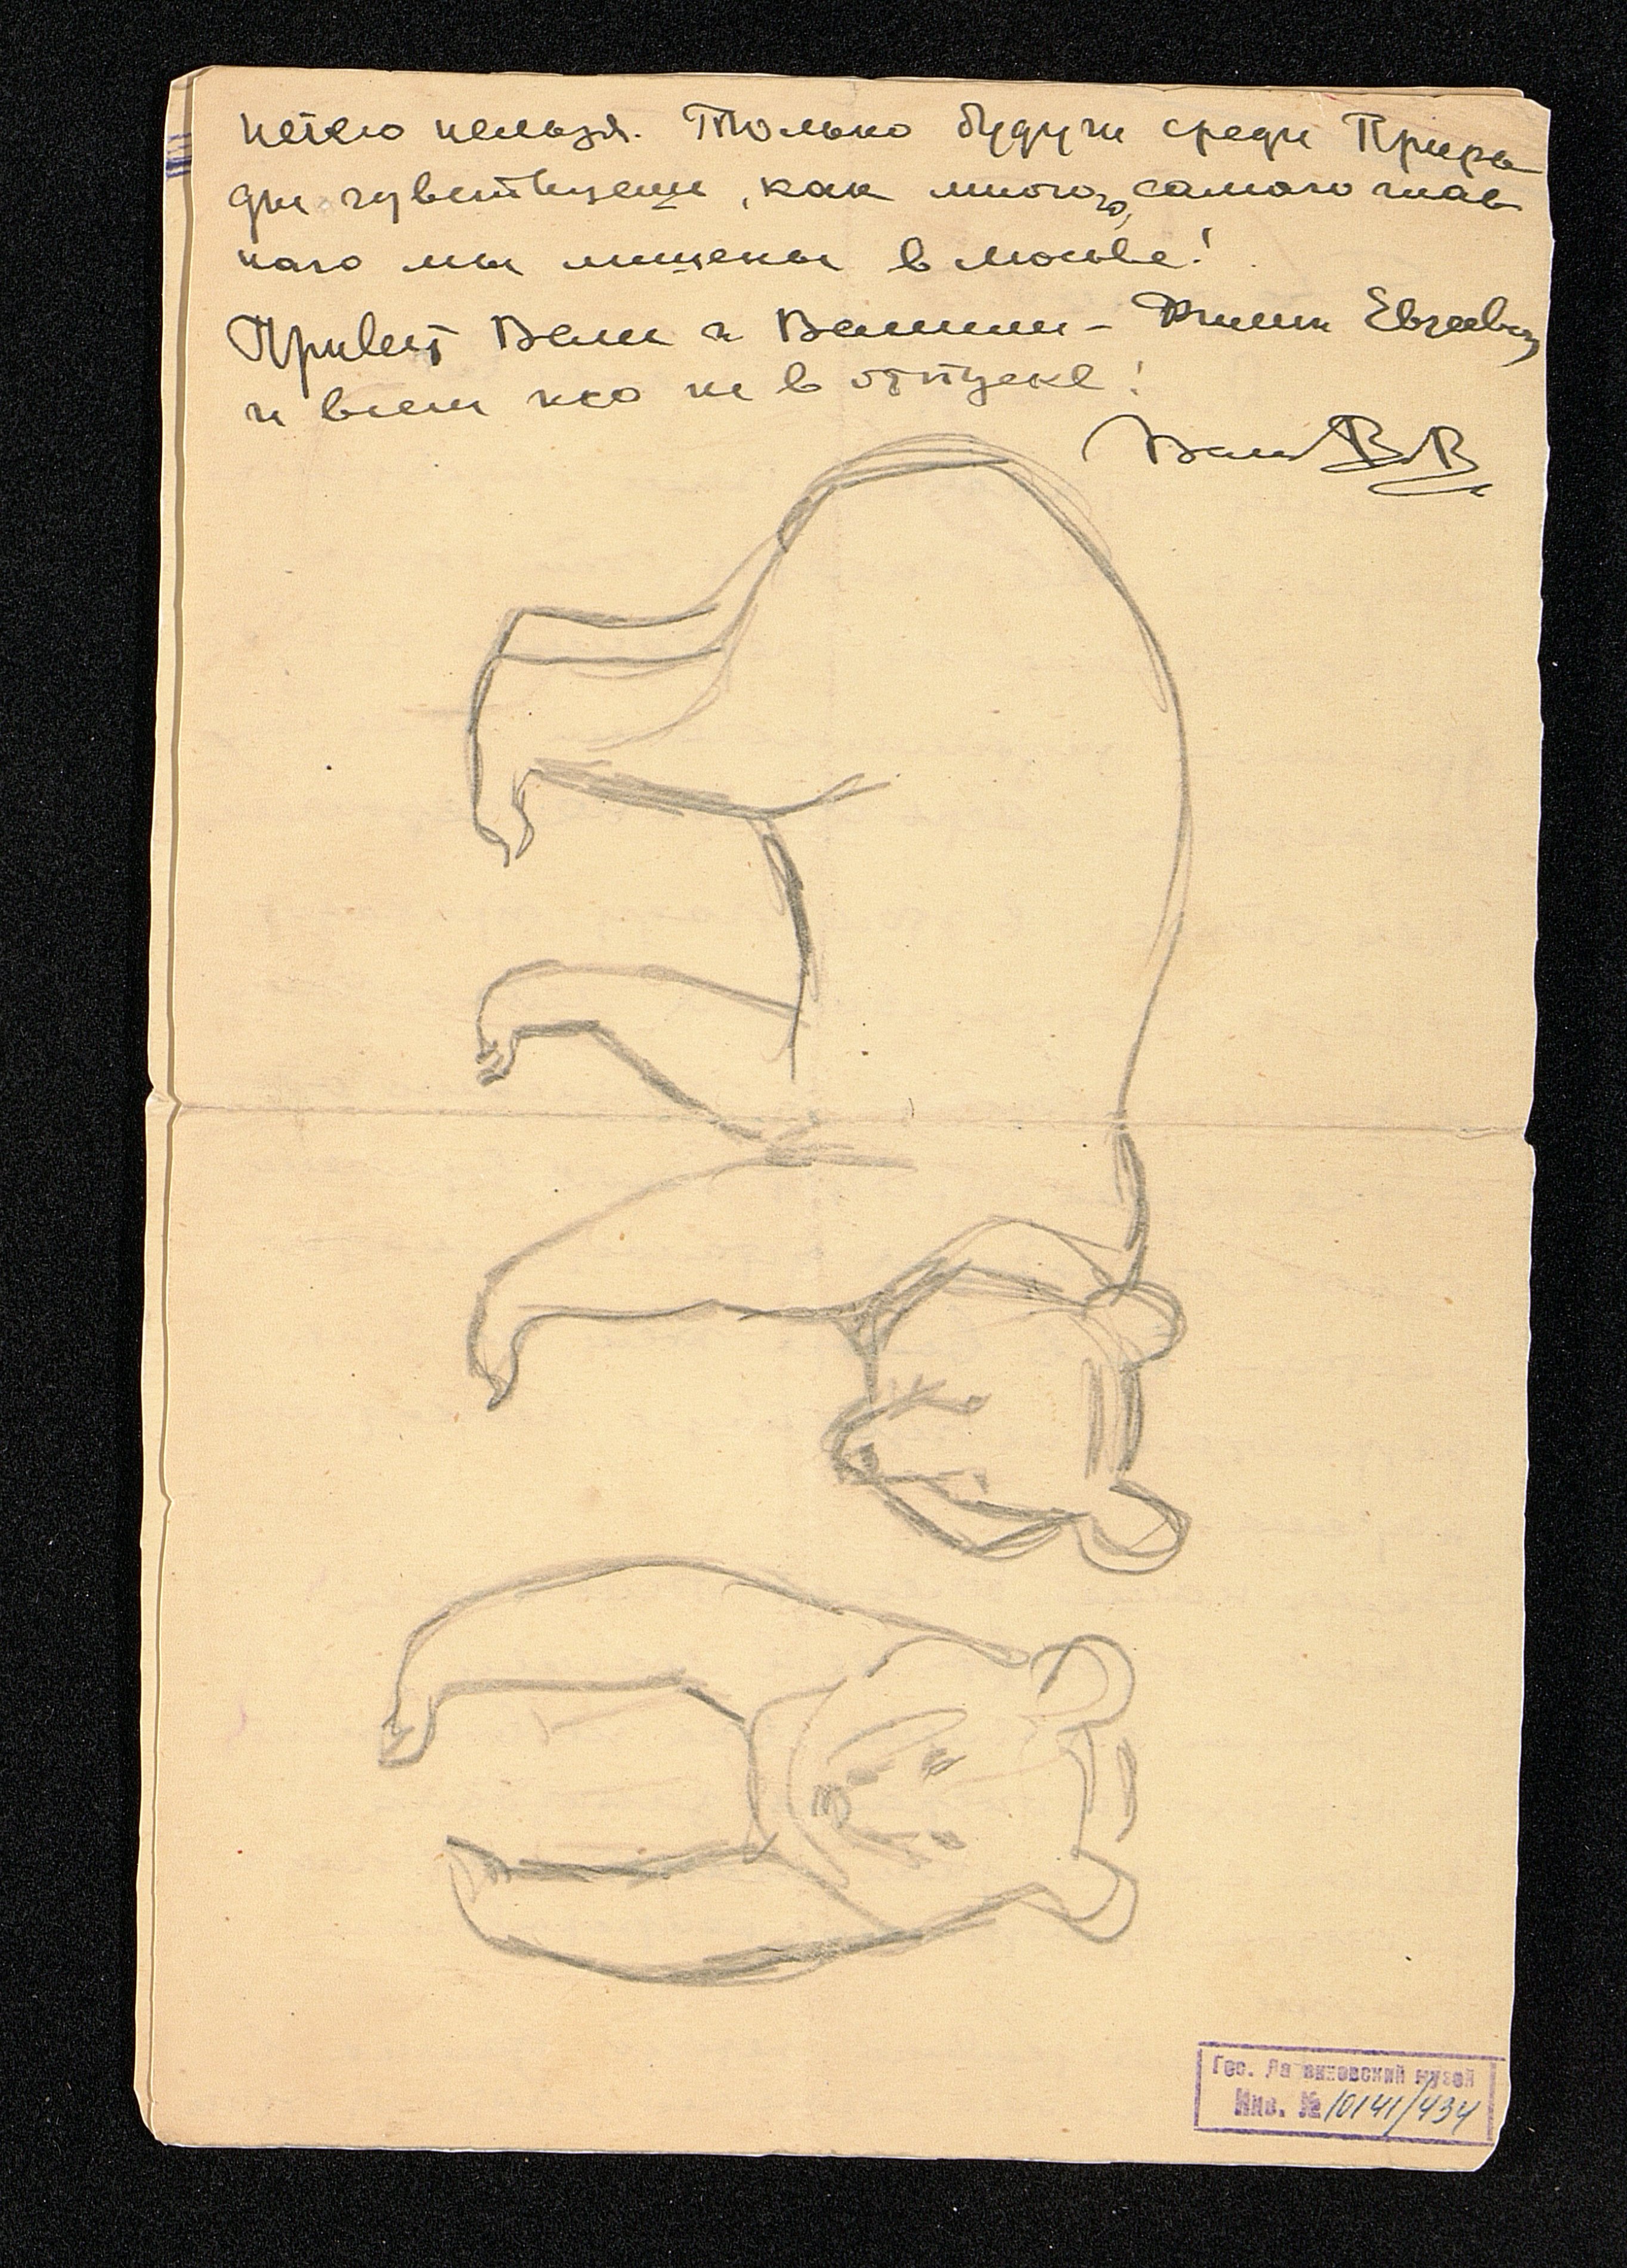 нельзя. Только будучи среди Приро
ды чувствуешь, как много, самого глав
ного мы лишены в Москве!
Привет Вам и Вашим –
и всем кто не в отпуске!
Ваш ВВ
Гос. Дарвиновский музей
Инв. № 10141/434